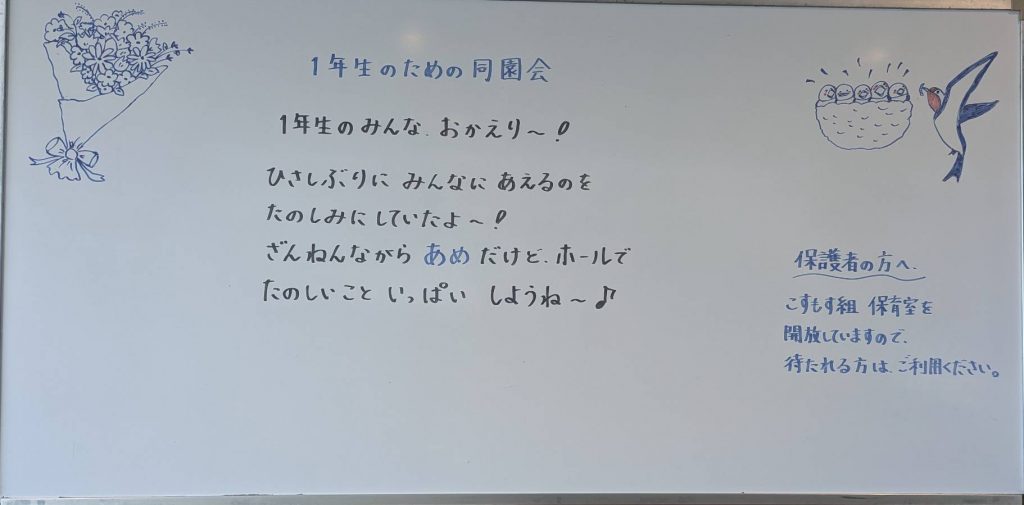 1年生のための同園会
1年生のみんな、おかえり〜!
ひさしぶりに みんなに あえるのを
たのしみに していたよ〜!
ざんねんながら あめ だけど、ホールで
たのしいこと いっぱい しようね〜♪
保護者の方へ、
こすもす組 保育室を
開放していますので、
待たれる方は、ご利用ください。